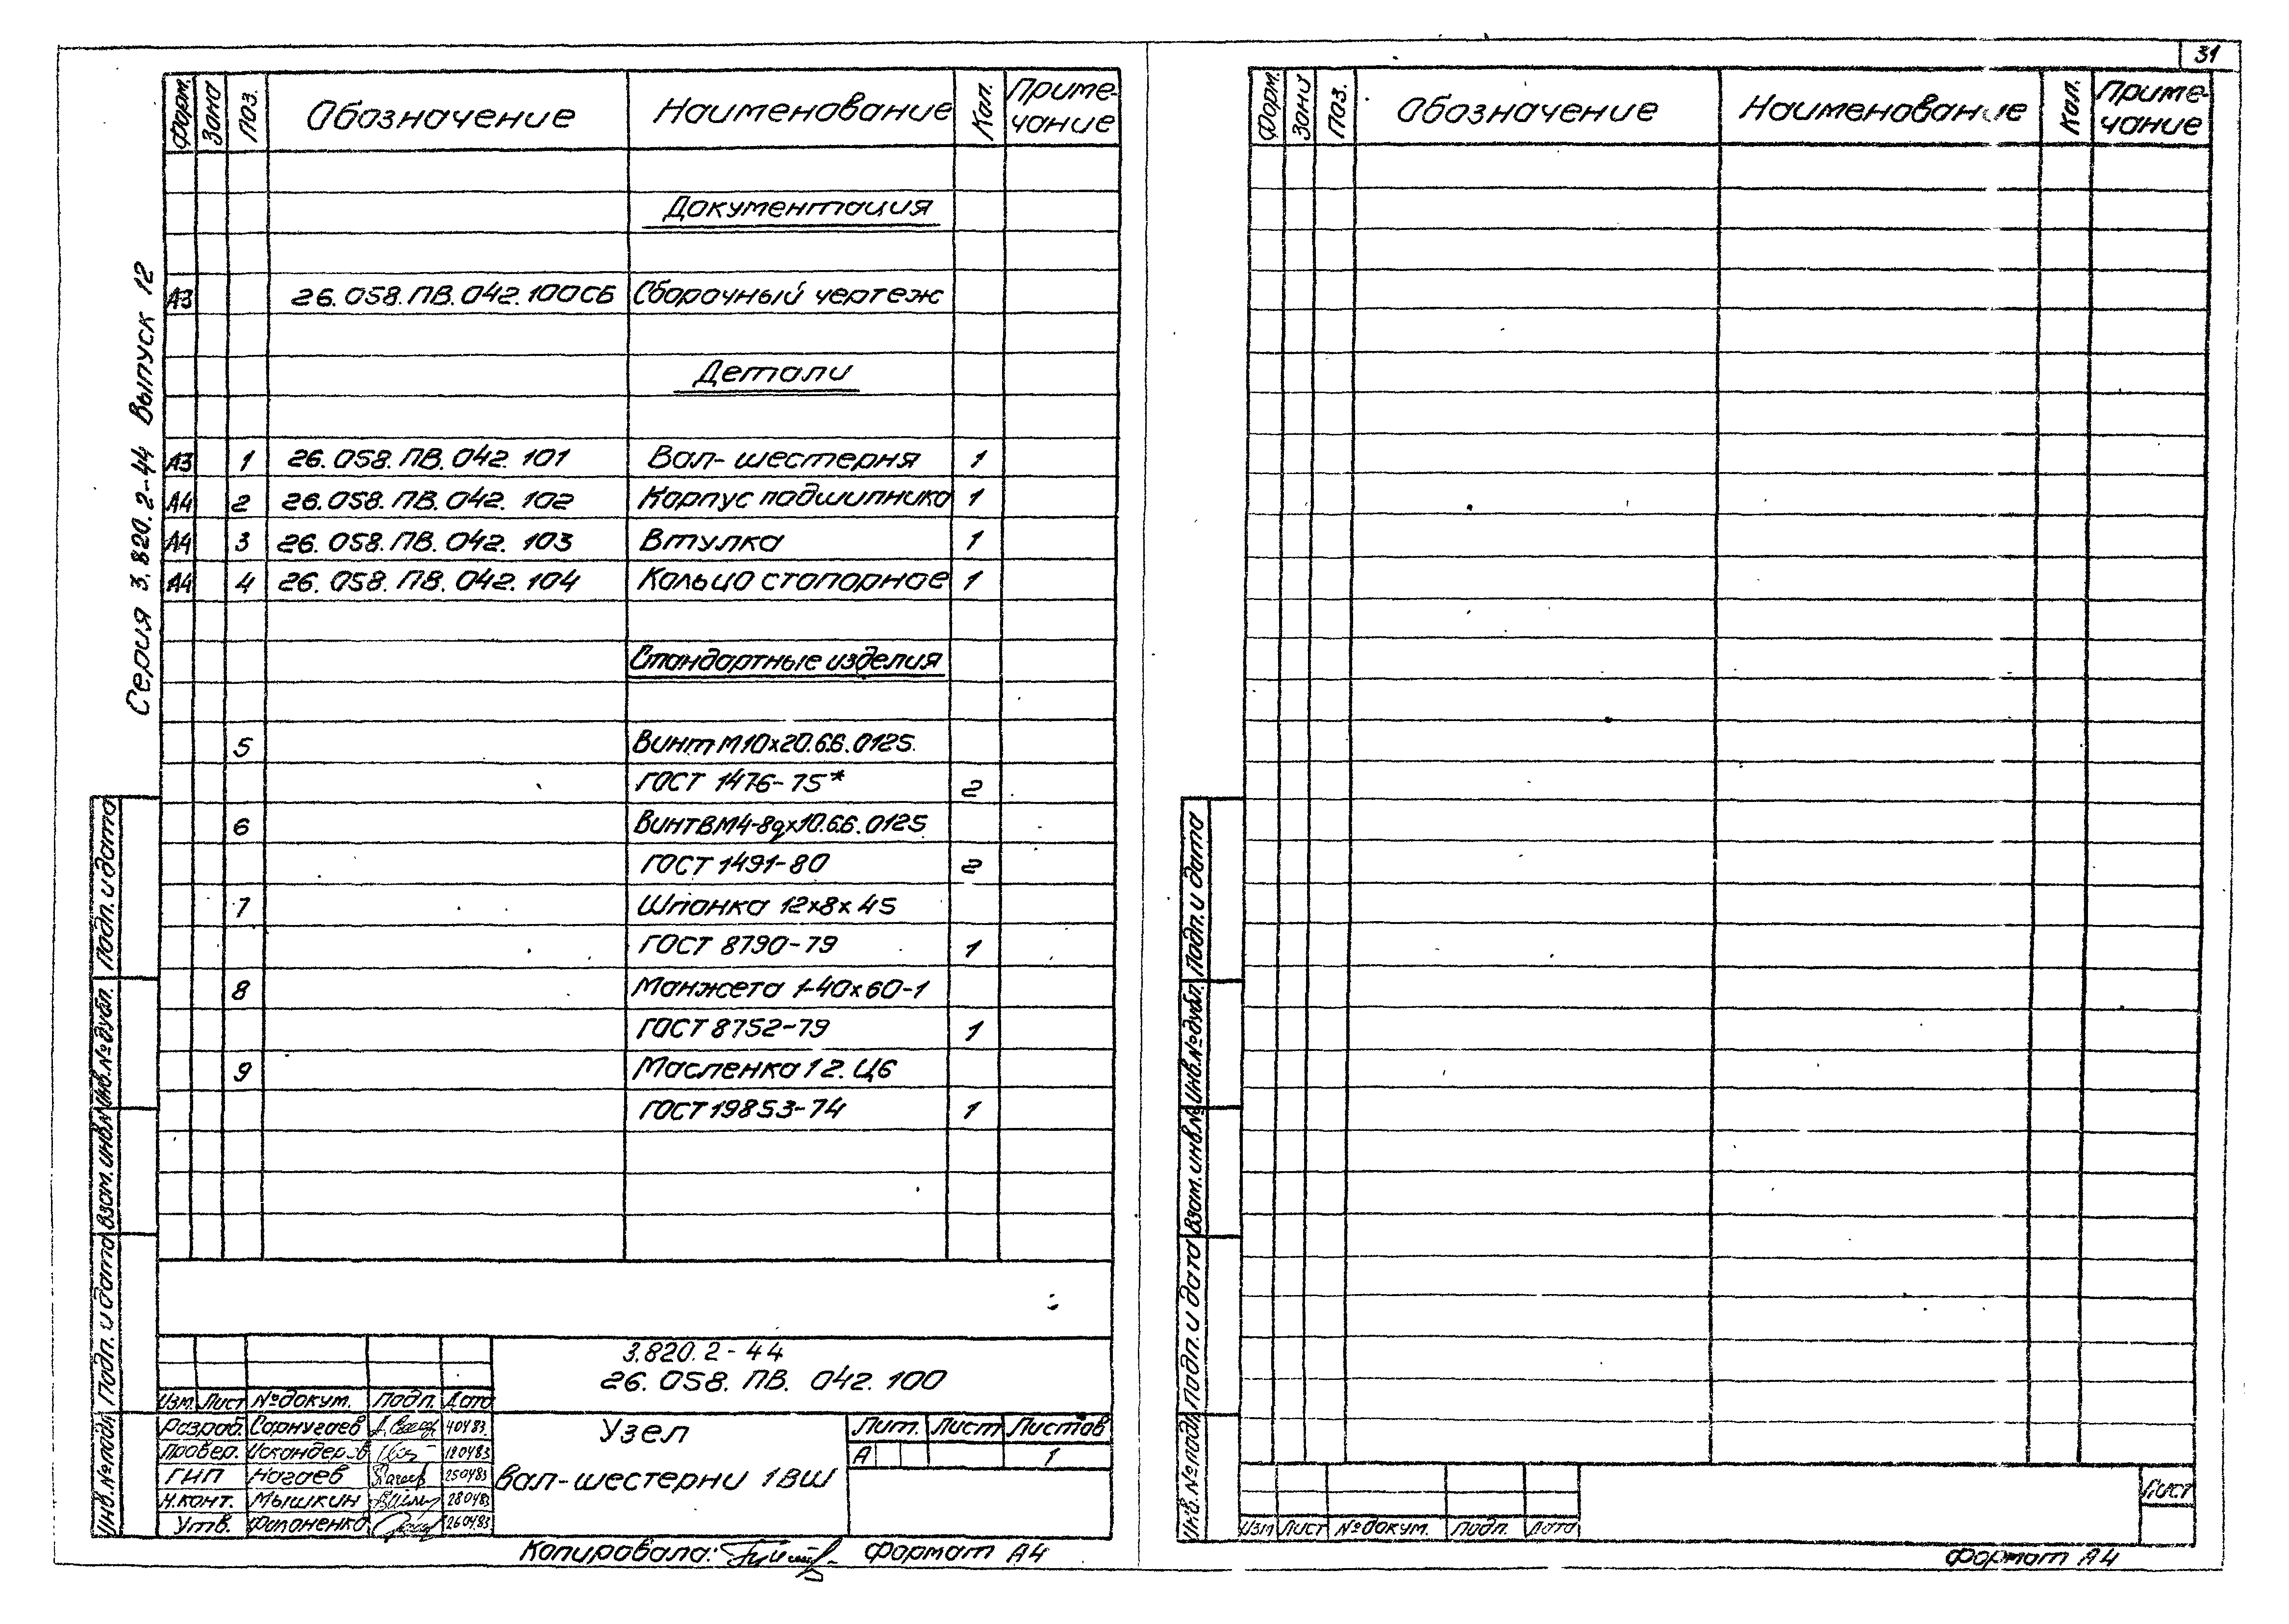 31
Серия 3.820.2-44 Выпуск 12
Форм. Зона Поз. Обозначение Наименование Кол. Приме-
чание
Документация
А3 26.058.ПВ.042.100СБ Сборочный чертеж
Детали
А3 1 26.058.ПВ.042.101 Вал-шестерня 1
А4 2 26.058.ПВ.042.102 Корпус подшипника 1
А4 3 26.058.ПВ.042.103 Втулка 1
А4 4 26.058.ПВ.042.104 Кольцо стопорное 1
Стандартные изделия
5 Винт М10х20.66.0125
ГОСТ 1476-75* 2
6 Винт ВМ4-8gх10.66.0125
ГОСТ 1491-80 2
7 Шпонка 12х8х45
ГОСТ 8790-79 1
8 Манжета 1-40х60-1
ГОСТ 8752-79 1
9 Масленка 1 2.Ц6
ГОСТ 19853-74 1
Подп. и дата
Инв.№дубл.
Взам.инв.№
Подп. и дата
Инв.№подл.
3.820.2-44
26.058.ПВ.042.100
Изм. Лист №докум. Подп. Дата
Разраб. Сорнугаев 40483
Провер. Искандеров 190483
ГИП Нагаев 250483
Н.конт. Мышкин 280483
Утв. Филоненко 260483
Узел
вал-шестерни 1ВШ
Лит. Лист Листов
А 1
Копировала: Формат А4
Форм. Зона Поз. Обозначение Наименование Кол. Приме-
чание
Подп. и дата
Инв.№дубл.
Взам.инв.№
Подп. и дата
Инв.№подл.
Изм Лист №докум. Подп. Дата
Лист
Формат А4